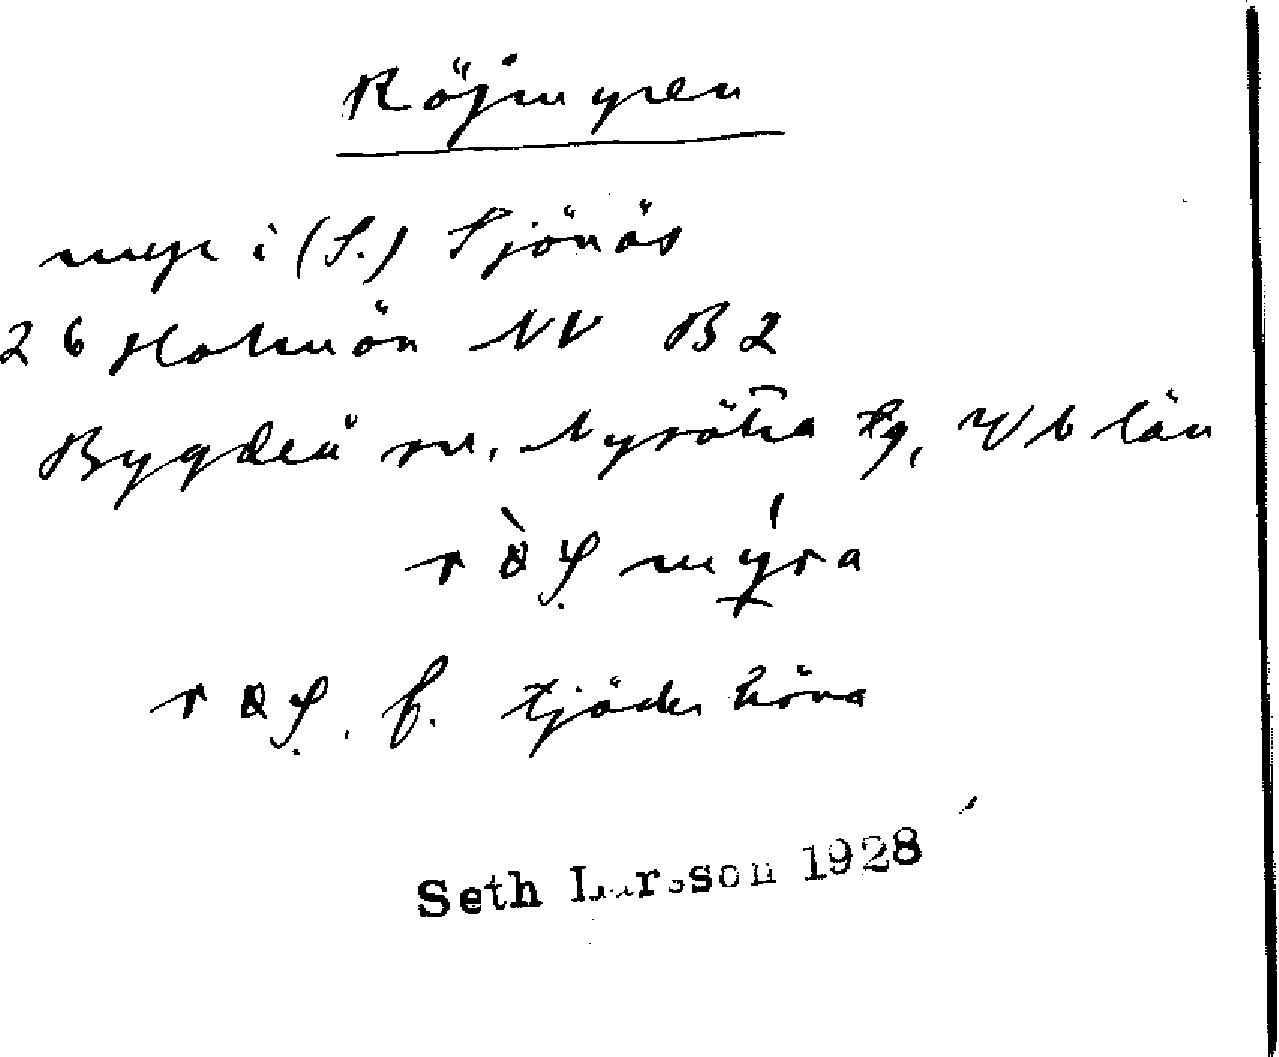 Röjmyren
myr i (S.) Sjönäs
26 Holmön NV B2
Bygdeå sn, Nysätra tg, Vb län
r f. tjäderhöna
Seth Larsson 1928